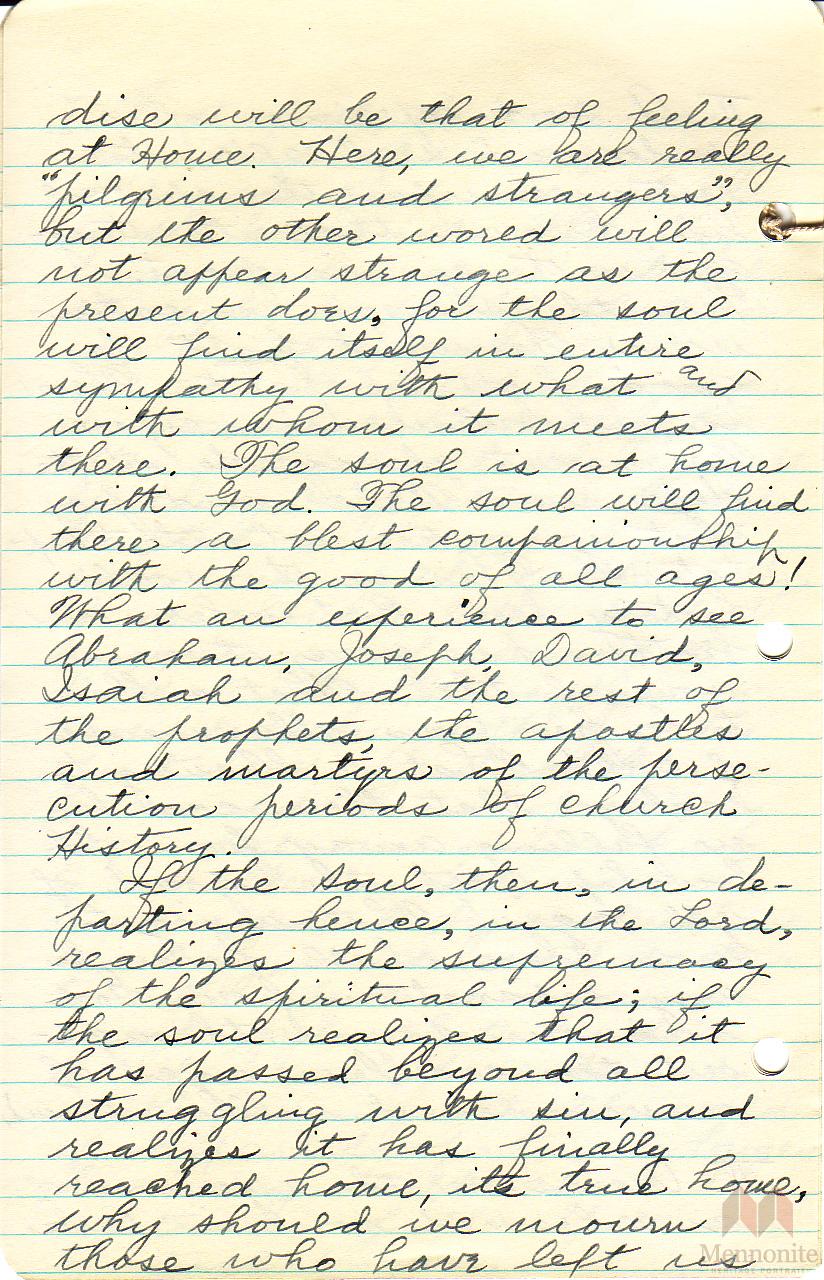 dise will be that of feeling
at Home. Here, we are really
"pilgrims and strangers",
but the other world will
not appear strange as the
present does, for the soul
will find itself in entire
sympathy with what and
with whom it meets
there. The soul is at home
with God. The soul will find
there a blest companionship
with the good of all ages!
What an experience to see
Abraham, Joseph, David,
Isaiah and the rest of
the prophets, the apostles
and martyrs of the perse-
cution periods of church
History.
If the soul, then, in de-
parting hence, in the Lord,
realizes the supremacy
of the spiritual life; if
the soul realizes that it
has passed beyond all
struggling with sin, and
realizes it has finally
reached home, its true home,
why should we mourn
those who have left us
Mennonite
HERITAGE PORTRAIT